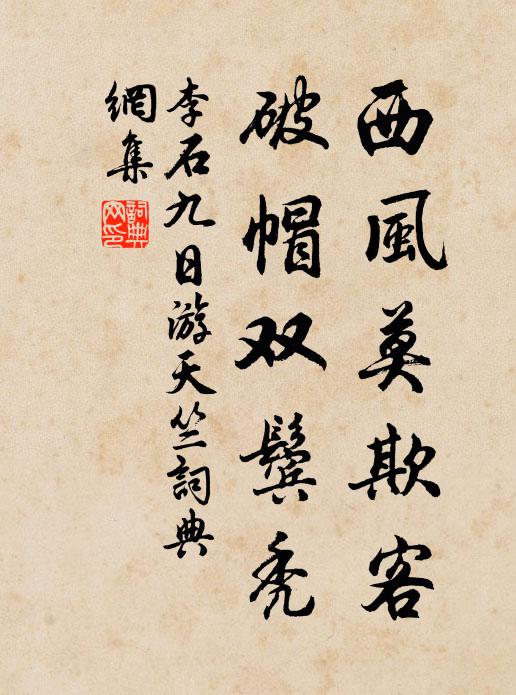 西風莫欺客
破帽双鬢禿
李石九日游天竺詞典
網集
詞典
网印